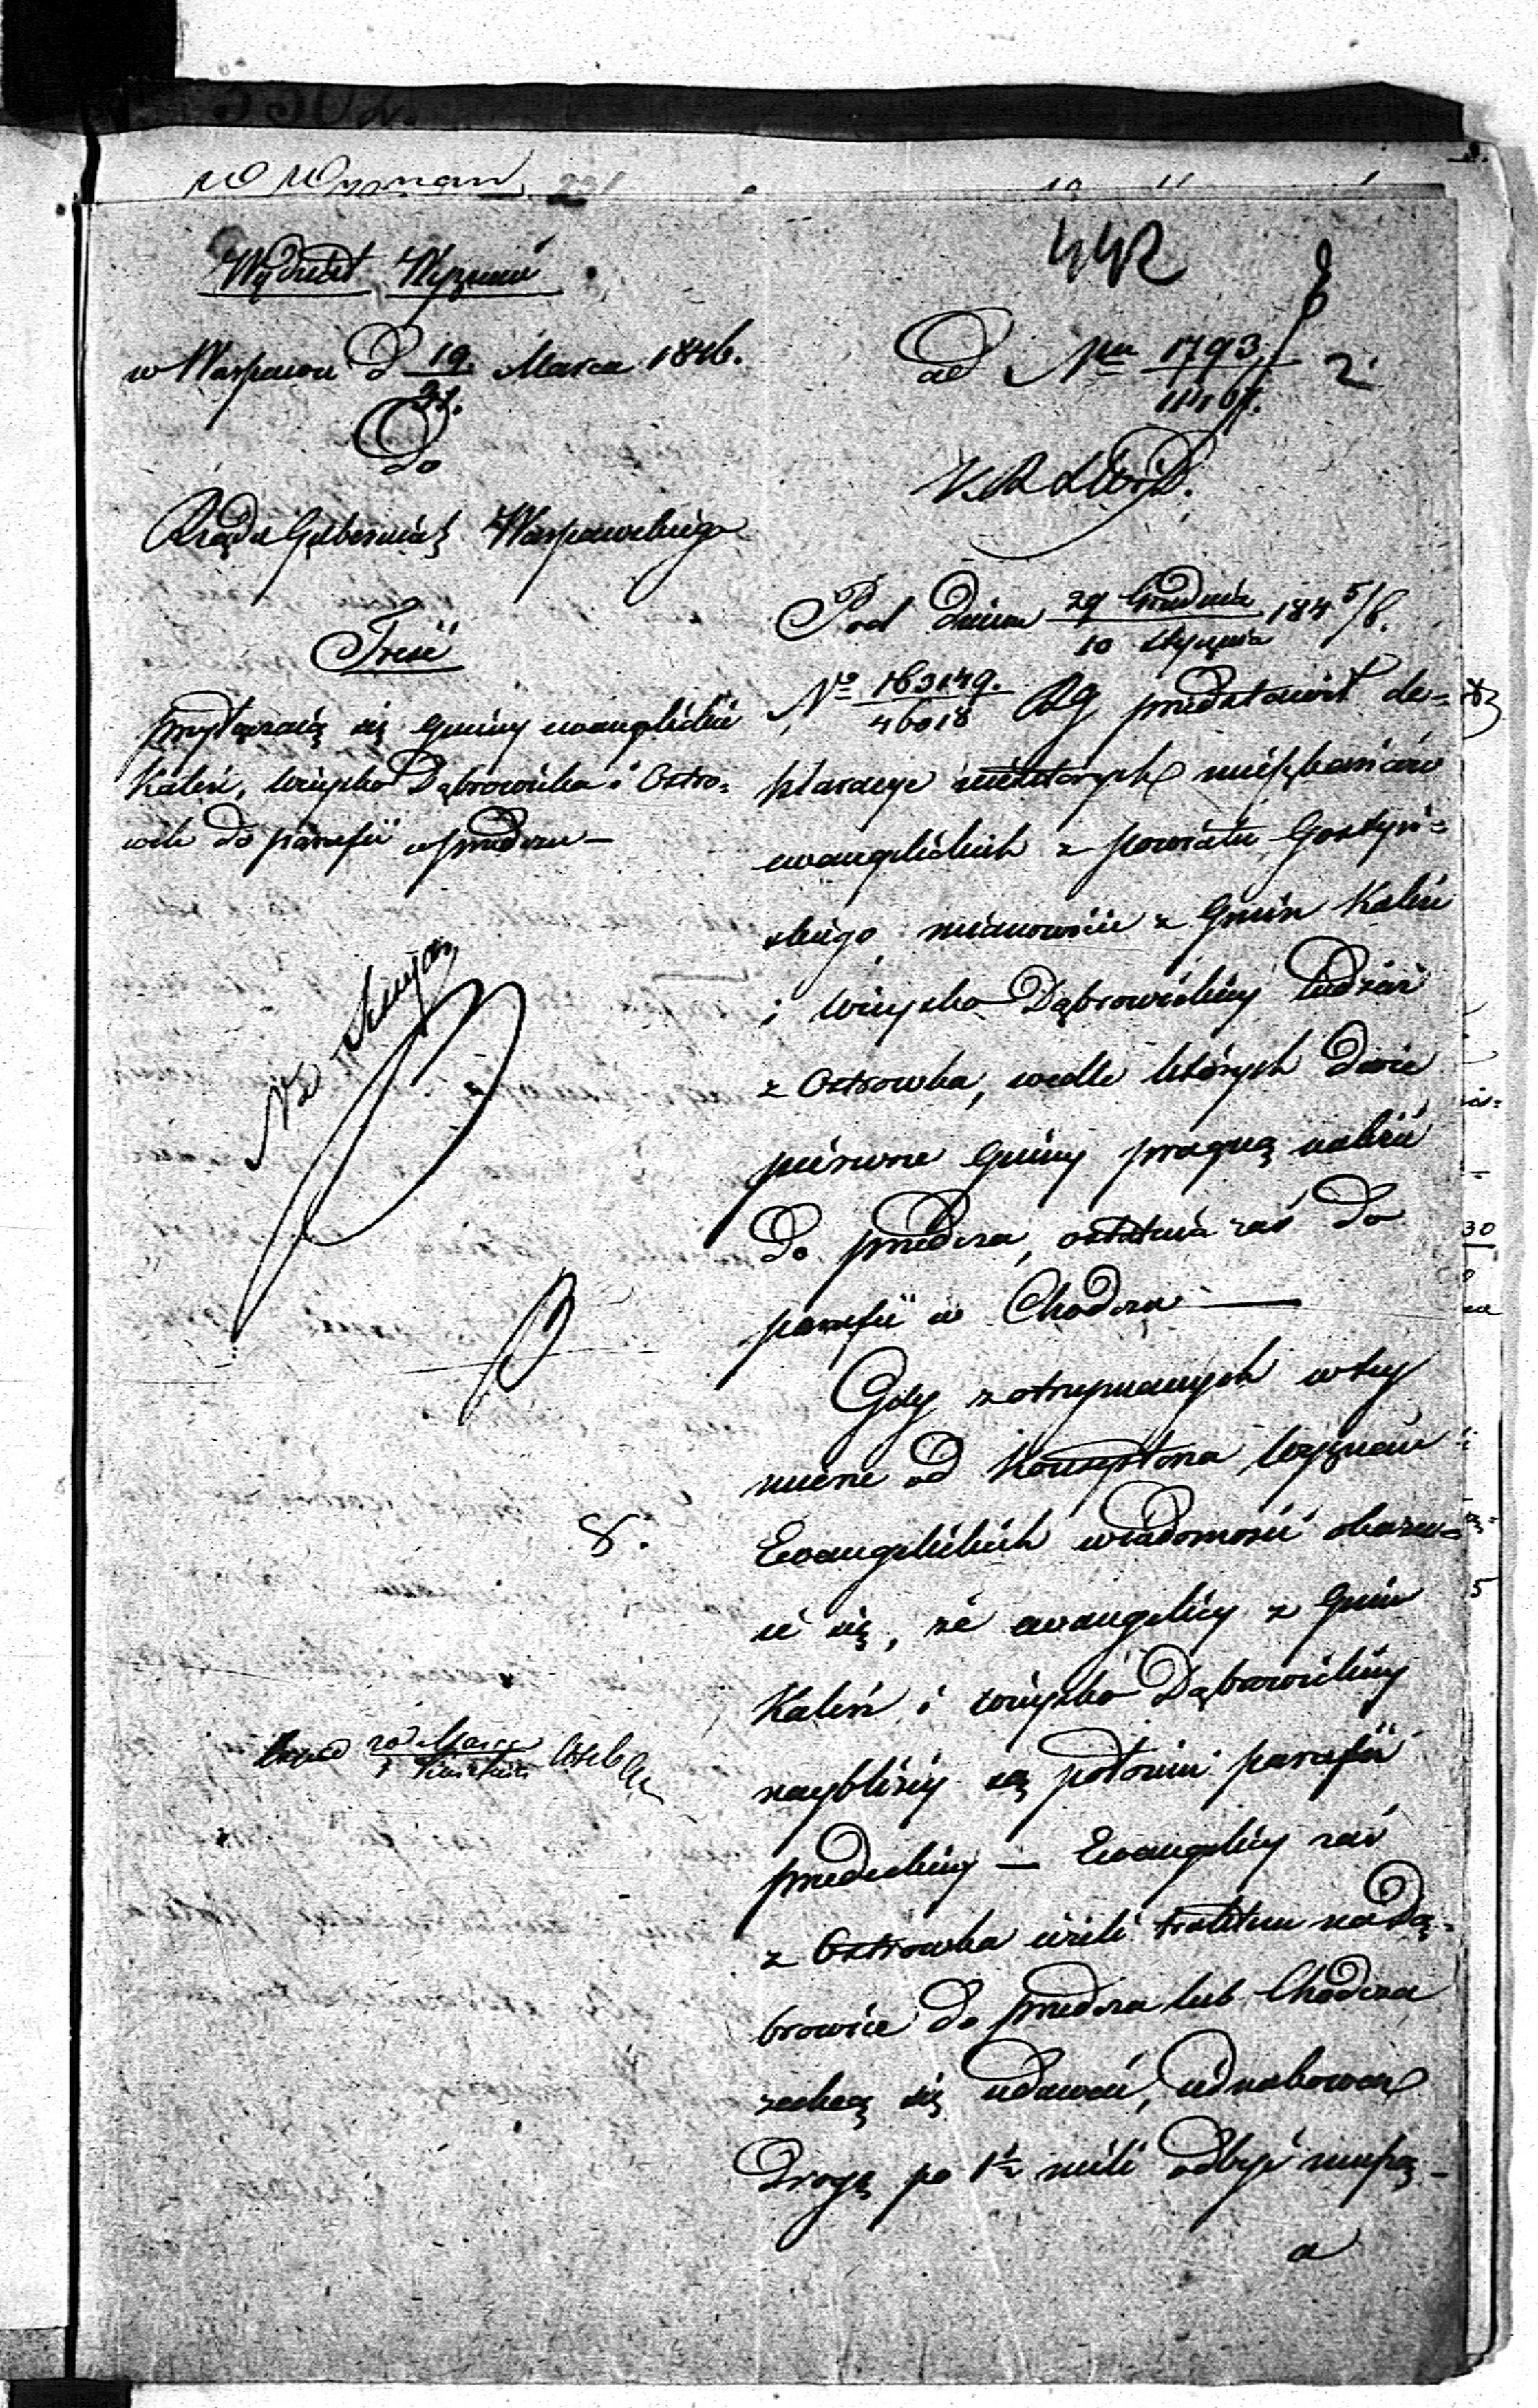 442
Wydział Wyznań
w Warszawie D 19/31. Marca 1846.
Do
Rządu Gubernial: Warszawskiego
Treść
przyłączaią się Gminy ewangelickie
Kaleń, Woyszko Dąbrowicka i Ostro=
wek do parafii w przedczu —
ad Nru 1793/
2.
Pod dniem 29 Grudnia/10 Stycznia 184 5/6.
No 163149./46018 RG przedstawił de=
klaracye niektórych mieszkańców
ewangelickich z powiatu Gostyń=
skiego, mianowicie z Gmin Kaleń
i Woyszko Dąbrowickiey tudzież
z Ostrowka, wedle których dwie
pierwsze Gminy pragną należeć
do przedcza, ostatnia zaś do
parafii w Chodczu —
Gdy z otrzymanych w tey
mierze od Konsystorza Wyznań
Ewangelickich wiadomości okazu=
ie się, że ewangelicy z Gmin
Kaleń i Woyszko Dąbrowickiey
naybliżey są położeni parafii
przedeckiey — Ewangelicy zaś
z Ostrowka ieżeli traktem na Dą=
browice do przedcza lub Chodcza
zechcą się udawać, iednakową
drogę po 1½ mili odbyć muszą —
a
8.